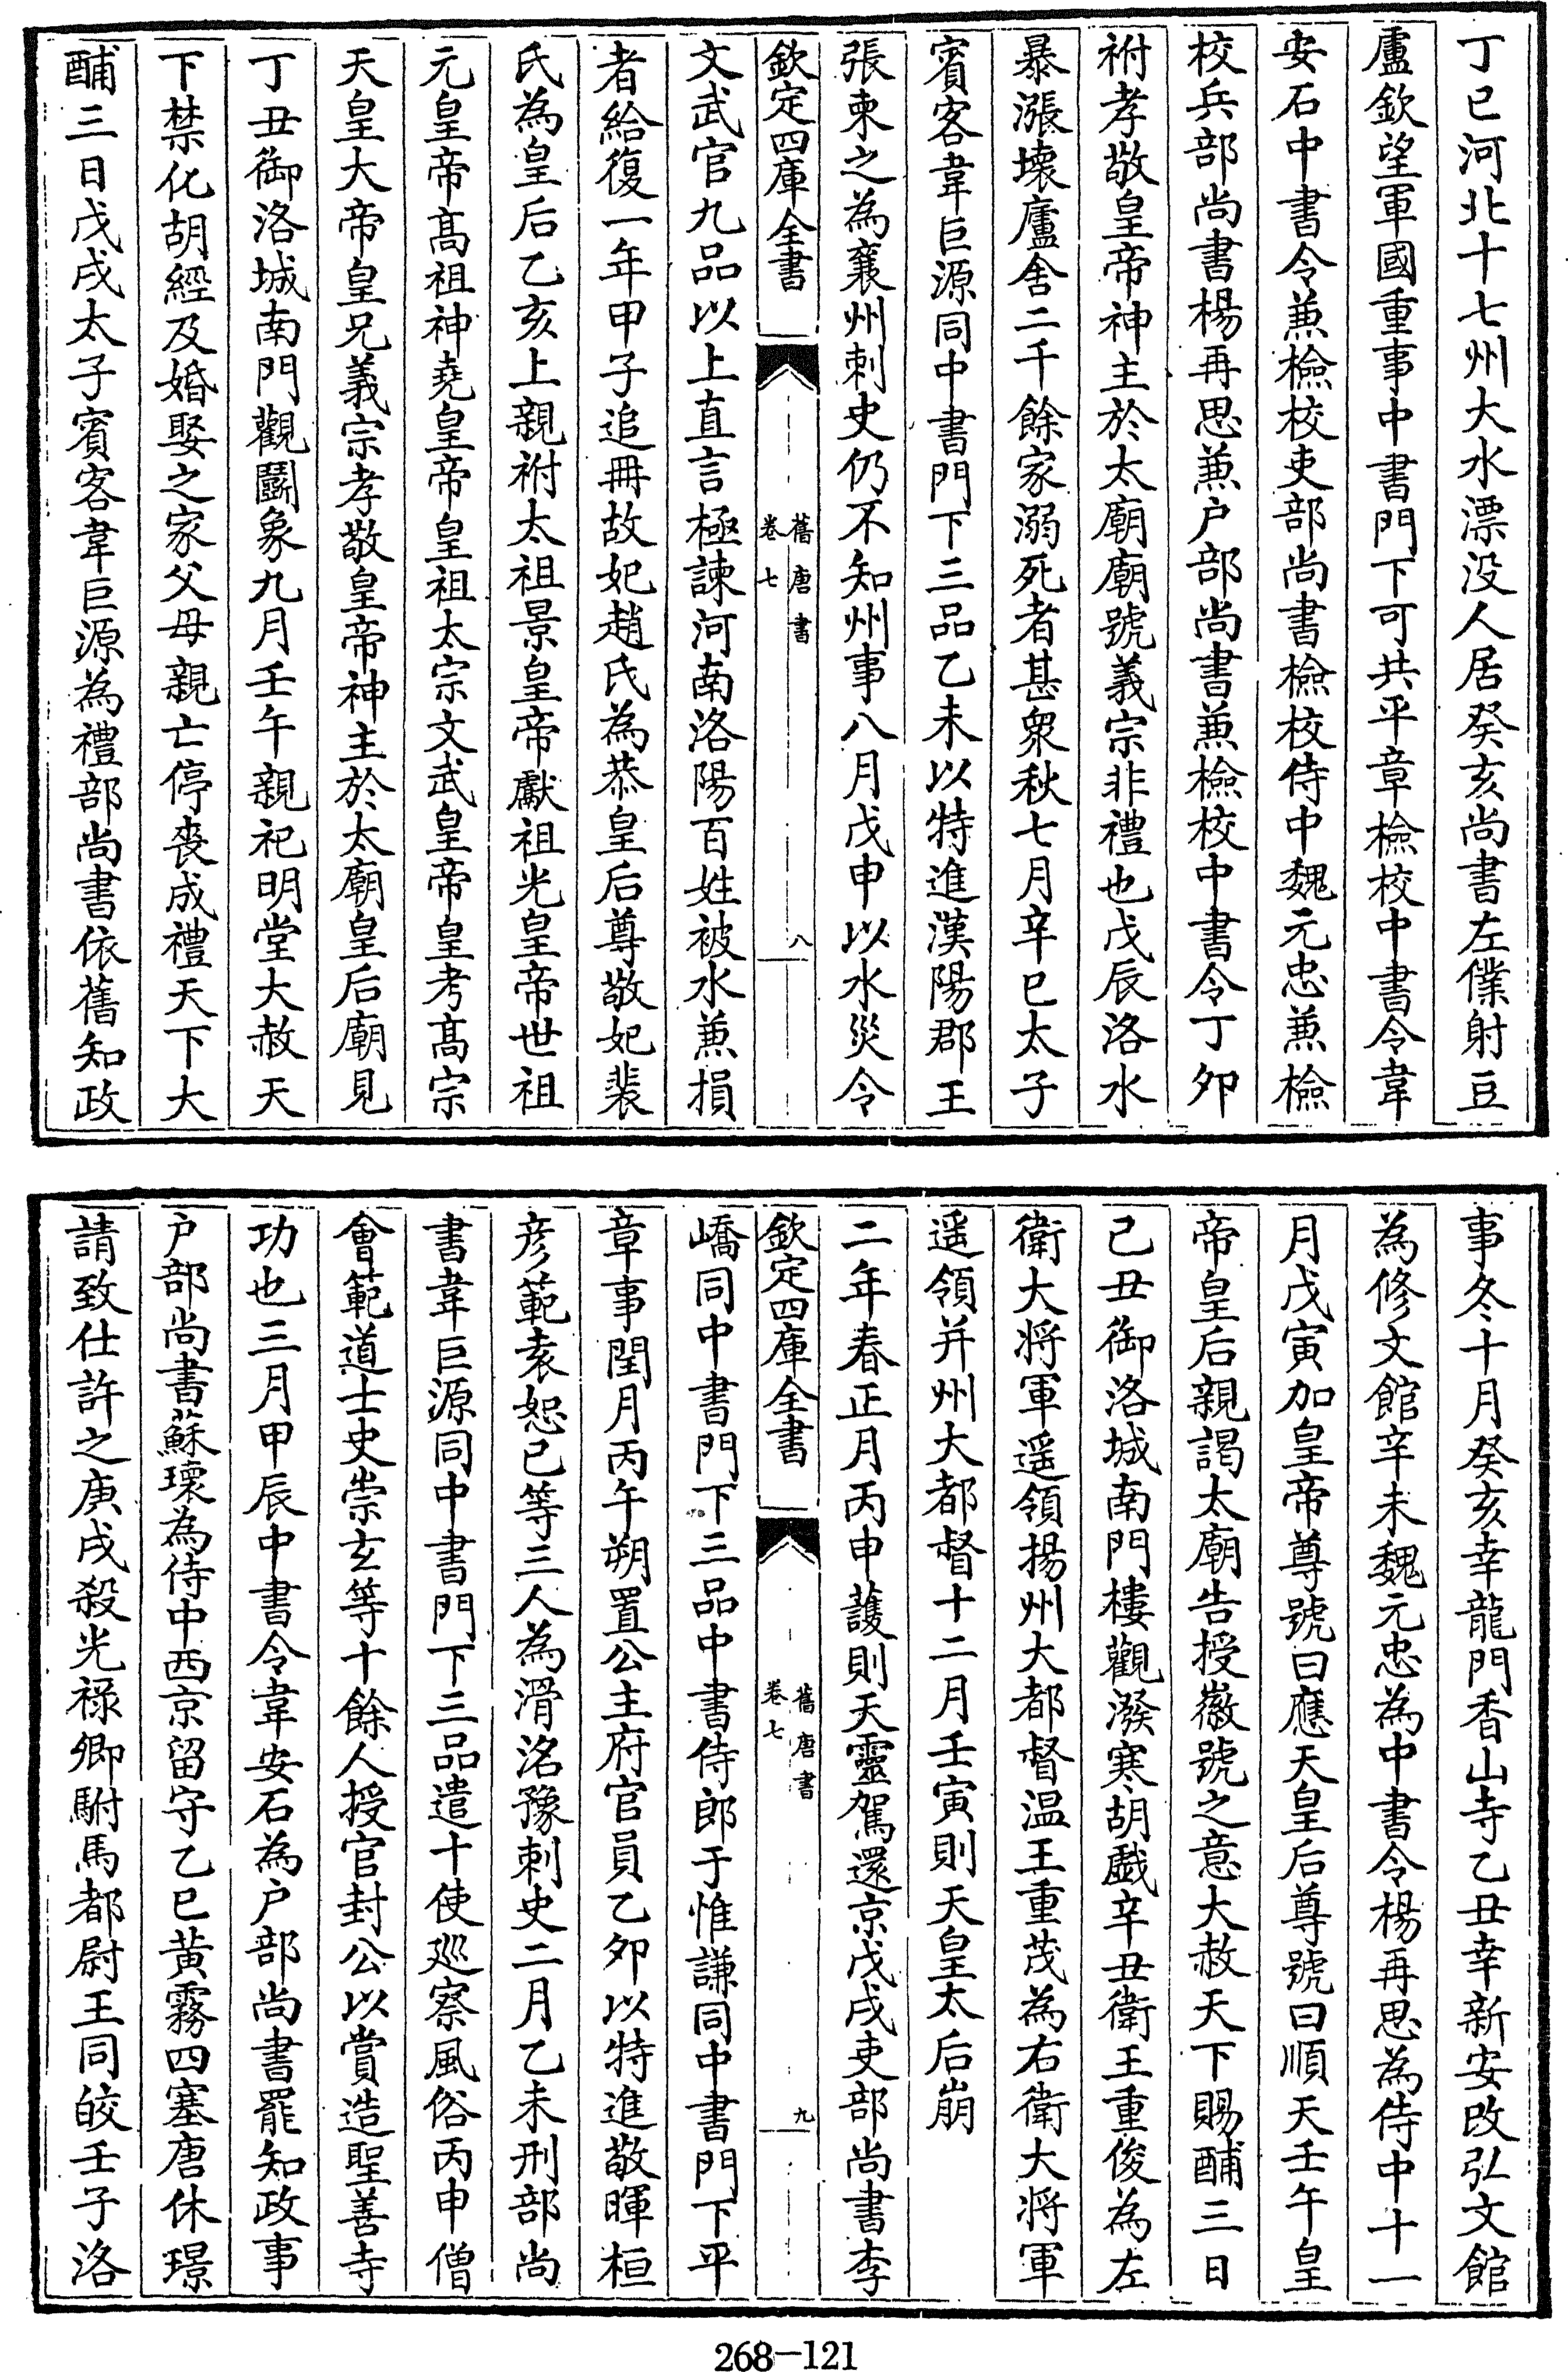 丁巳河北十七州大水漂没人居癸亥尚書左僕射豆
盧欽望軍國重事中書門下可共平章檢校中書令韋
安石中書令兼檢校吏部尚書檢校侍中魏元忠兼檢
校兵部尚書楊再思兼户部尚書兼檢校中書令丁夘
祔孝敬皇帝神主於太廟廟號義宗非禮也戊辰洛水
暴漲壊廬舍二千餘家溺死者甚衆秋七月辛巳太子
賓客韋巨源同中書門下三品乙未以特進漢陽郡王
張柬之為襄州刺史仍不知州事八月戊申以水災令
欽定四庫全書
舊唐書
卷七
八
文武官九品以上直言極諫河南洛陽百姓被水兼損
者給復一年甲子追冊故妃趙氏為恭皇后尊敬妃裴
氏為皇后乙亥上親祔太祖景皇帝獻祖光皇帝世祖
元皇帝髙祖神堯皇帝皇祖太宗文武皇帝皇考髙宗
天皇大帝皇兄義宗孝敬皇帝神主於太廟皇后廟見
丁丑御洛城南門觀鬬象九月壬午親祀明堂大赦天
下禁化胡經及婚娶之家父母親亡停喪成禮天下大
酺三日戊戌太子賓客韋巨源為禮部尚書依舊知政
事冬十月癸亥幸龍門香山寺乙丑幸新安改弘文館
為修文館辛未魏元忠為中書令楊再思為侍中十一
月戊寅加皇帝尊號曰應天皇后尊號曰順天壬午皇
帝皇后親謁太廟告授徽號之意大赦天下賜酺三日
己丑御洛城南門樓觀潑寒胡戲辛丑衛王重俊為左
衛大將軍遥領揚州大都督温王重茂為右衛大將軍
遥領并州大都督十二月壬寅則天皇太后崩
二年春正月丙申護則天靈駕還京戊戌吏部尚書李
欽定四庫全書
舊唐書
卷七
九
嶠同中書門下三品中書侍郎于惟謙同中書門下平
章事閏月丙午朔置公主府官員乙夘以特進敬暉桓
彦範袁恕已等三人為滑洺豫刺史二月乙未刑部尚
書韋巨源同中書門下三品遣十使廵察風俗丙申僧
會範道士史崇玄等十餘人授官封公以賞造聖善寺
功也三月甲辰中書令韋安石為户部尚書罷知政事
户部尚書蘇瓌為侍中西京留守乙巳黄霧四塞唐休璟
請致仕許之庚戌殺光禄卿駙馬都尉王同皎壬子洛
268-121